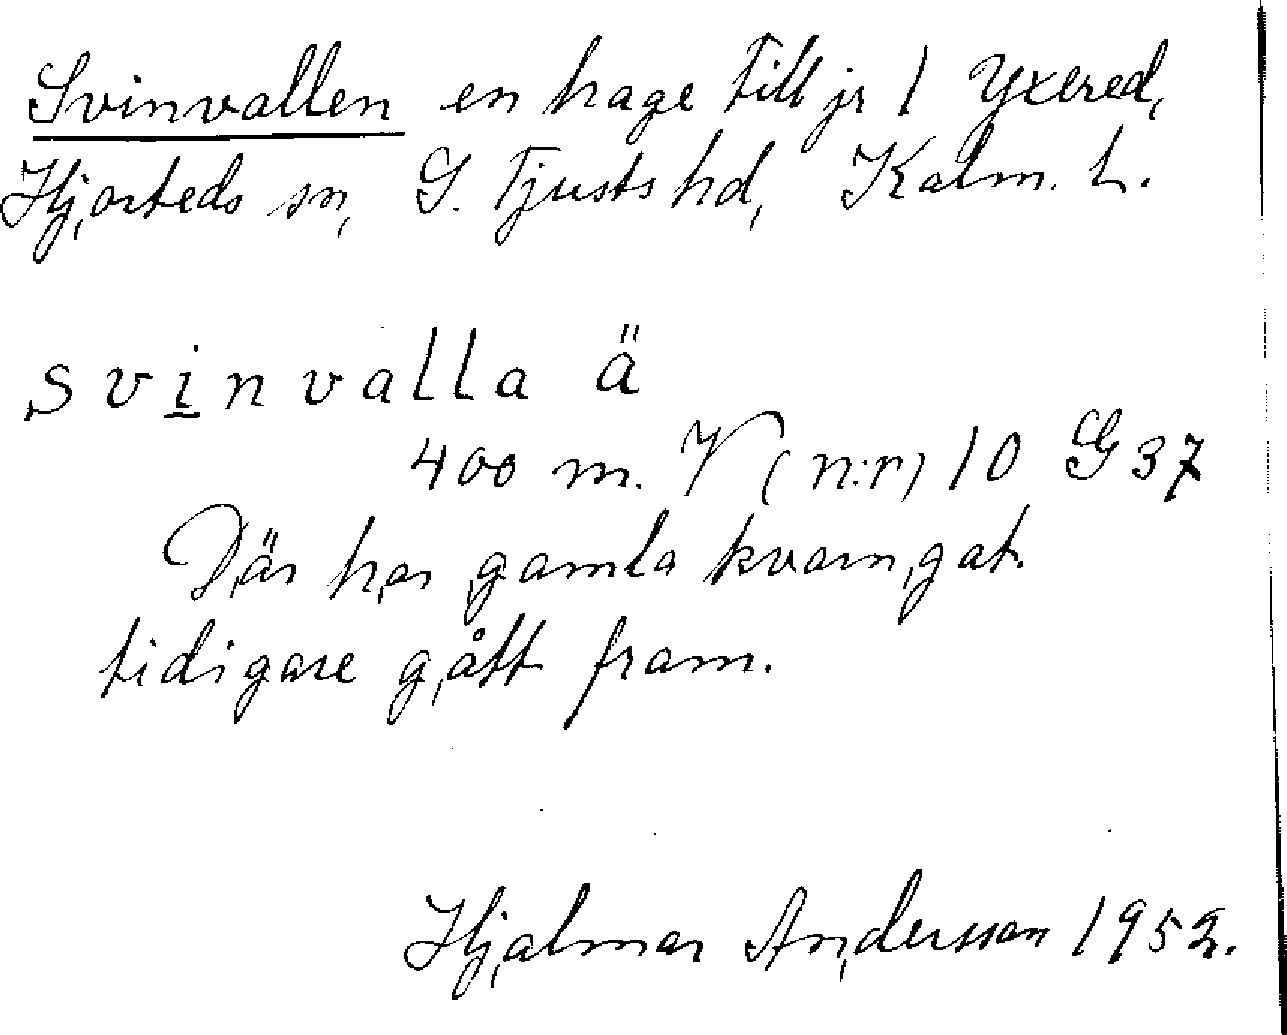 Svinvallen en hage till jr 1 Yxered,
Hjorteds sn, S. Tjusts hd, Kalm. L.
svinvalla ä
400 m. V (n:r) 10 SG 37
Där har gamla kvarngat.
tidigare gått fram.
Hjalmar Andersson 1952.